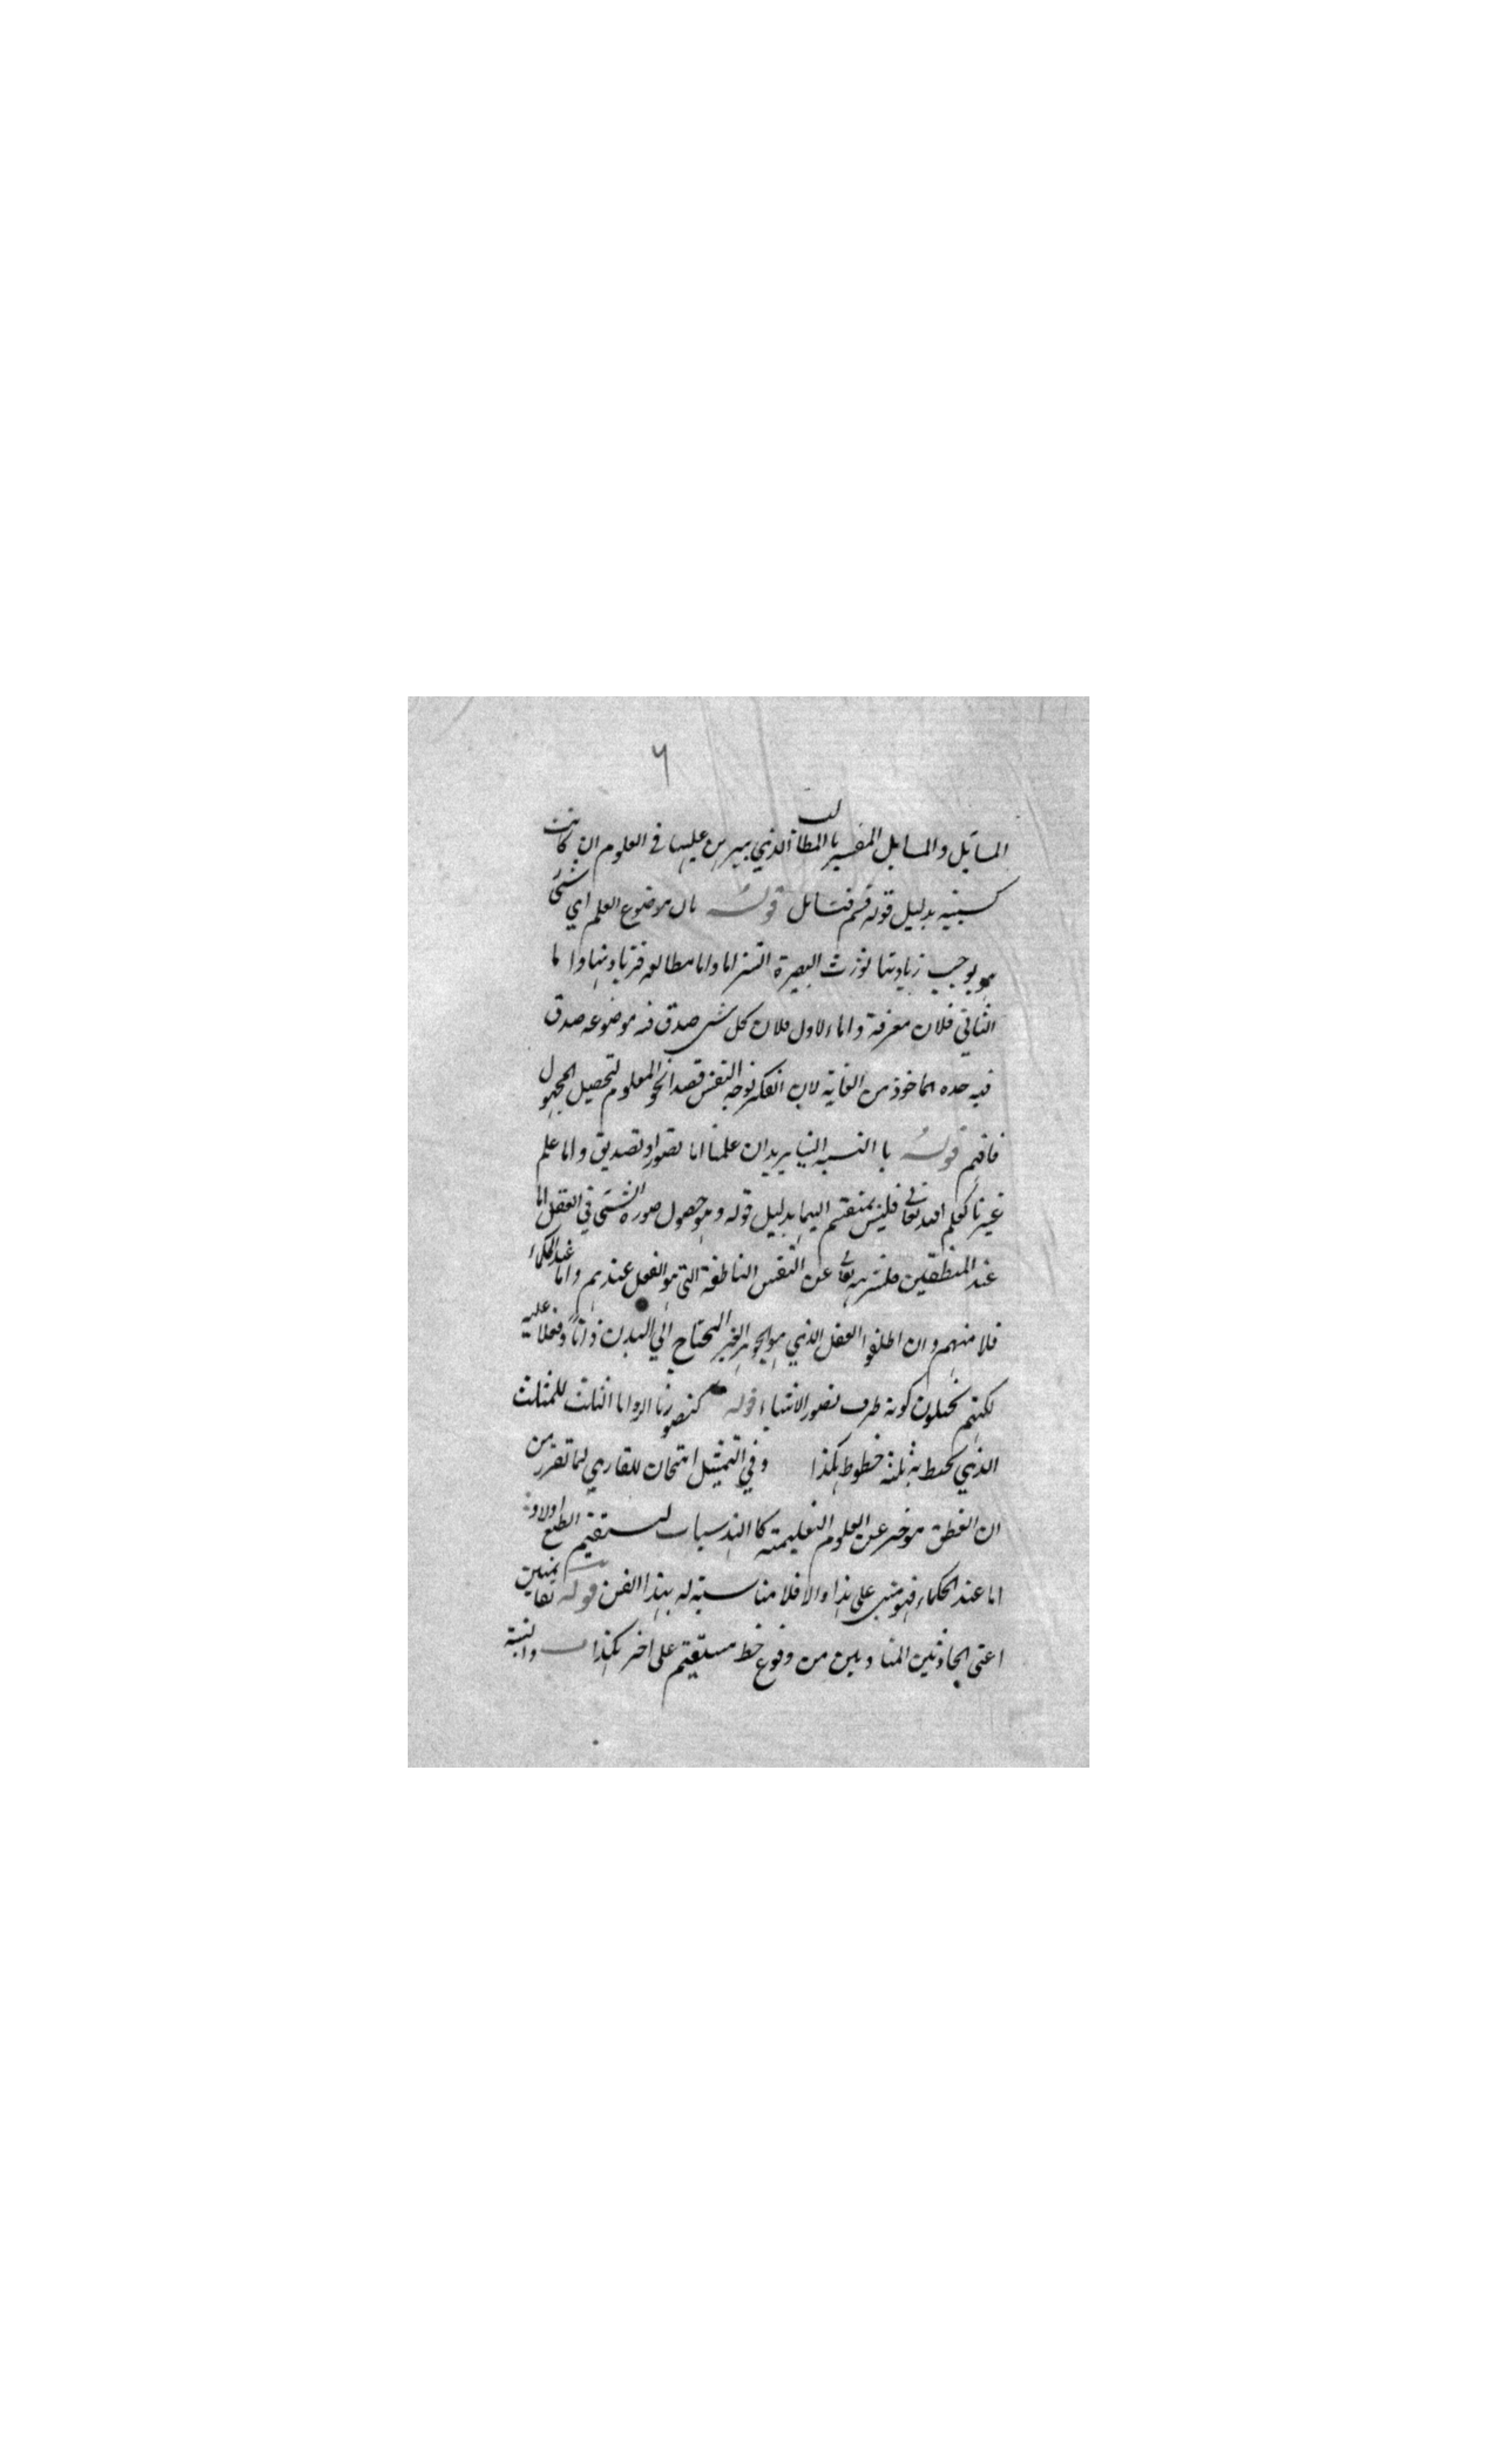 ٦
المسائل والمسايل المفسر باالمطالب الذي يبرهن عليها في العلوم ان كانت
كسبيه بدليل قوله قسم فتسائل قوله بان موضوع العلم اي شئ
هو يوجب زيادتها تورث البصيرة التزاما واما مطالعه فزيادتها واما
الثاني فلان معرفة واما الاول فلان كل شى صدق فيه موضوعه صدق
فيه حده الماخوذ من الغاية لان الفكر توجه النفس قصدا نحو المعلوم لتحصيل المجهول
فافهم قوله باالنسبه الينا يريد ان علمنا اما تصور او تصديق واما علم
غيرنا كعلم الله تعالى فليس بمنقسم اليهما بدليل قوله وهو حصول صورة الشئ في العقل اما
عند المنطقيين فلتنزهه تعالى عن النفس الناطقة التي هو العقل عندهم واما عند الحكماء
فلا منهم وان اطلقوا العقل الذي هو الجوهر الغير المحتاج الي البدن ذاتا وفعلا عليه
لكنهم يحيلون كونه ظرف تصور الاشياء قوله كتصورنا الزوايا الثلث للمثلث
الذي يحيط به ثلثة خطوط هكذا وفي التمثيل امتحان للقاري لما تقرر من
ان المنطق موخر عن العلوم التعليمية كا الهندسيات ليستقيم الطبع اولا و
اما عند الحكماء فهو مبني على هذا والا فلا مناسبة له بهذا الفن قوله لقائمتين
اعني الحادثتين المتساويتين من وقوع خط مستقيم على اخر هكذا والنسبة